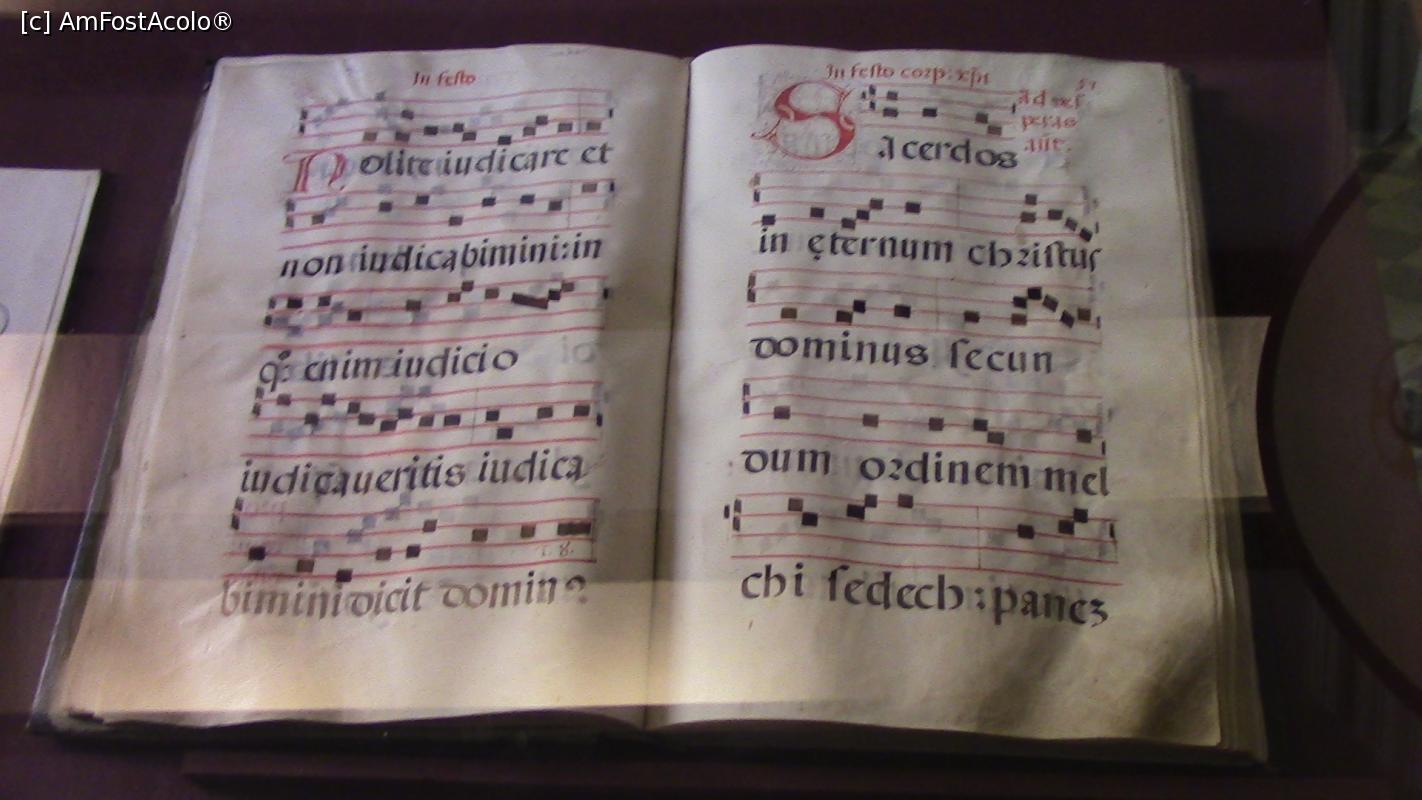 [c] AmFostAcolo®
In festo
Nolite iudicare et
non iudicabimini: in
q°: enim iudicio
iudicaueritis iudica
bimini dicit domin9.
In festo corp: xp̄i 57
Sacerdos
ad ves
peras
añt.
in ęternum christus
dominus secun
dum ordinem mel
chi sedech: panez